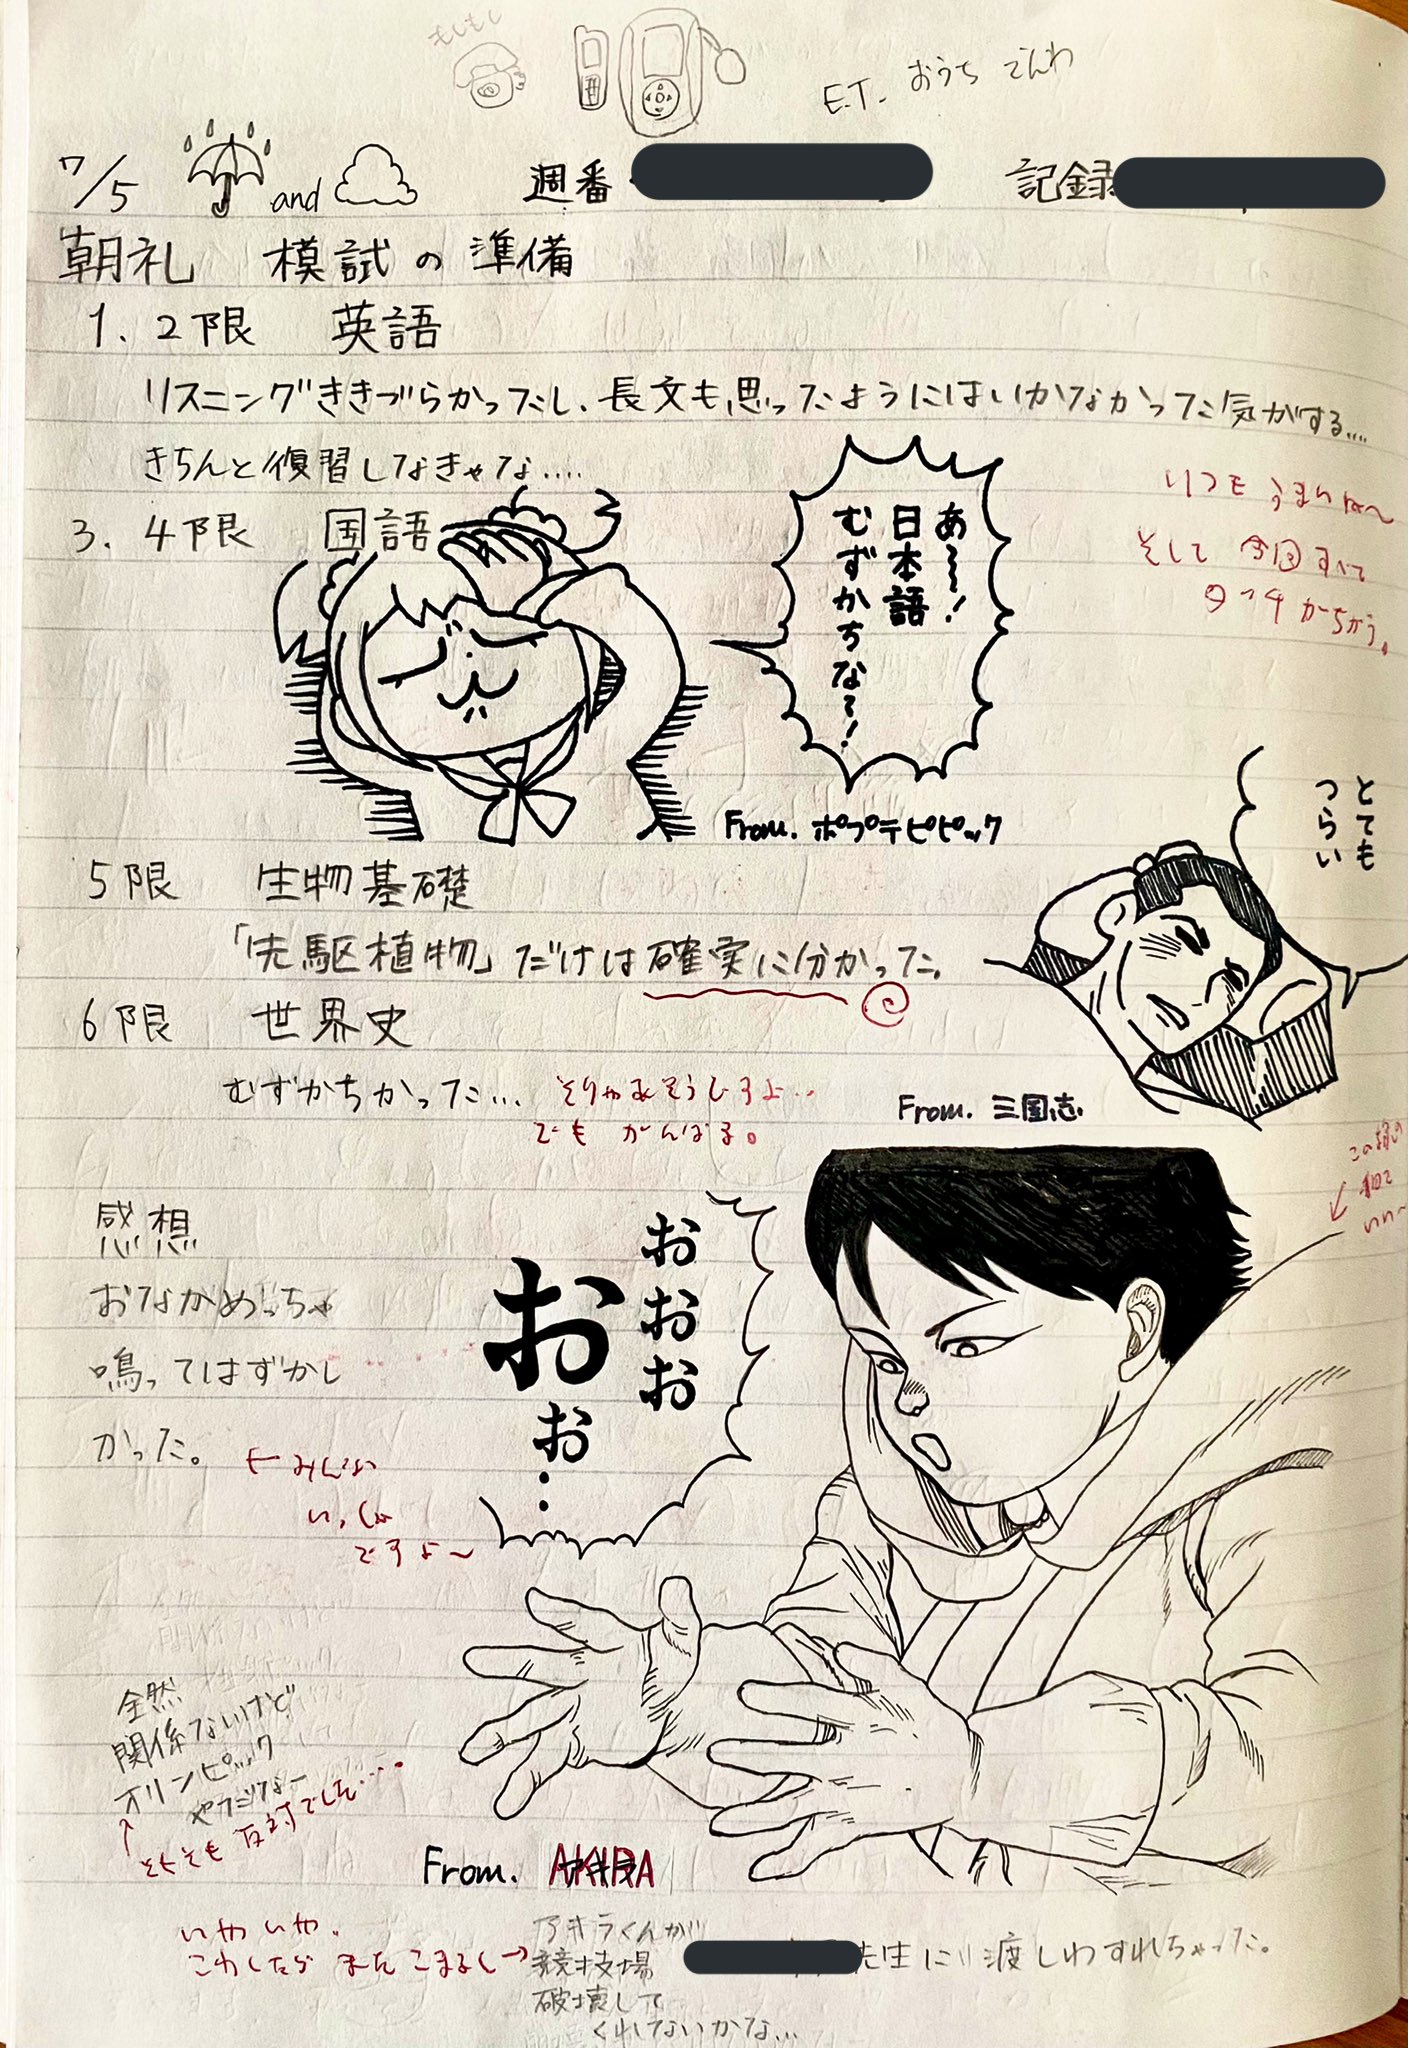 もしもし
E.T. おうち でんわ
7/5 and 週番 記録
朝礼 模試の準備
1.2限 英語
リスニングききづらかったし、長文も思ったようにはいかなかった気がする....
きちんと復習しなきゃな....
いつも うまいね〜
そして 今回すべて
タッチがちがう。
3.4限 国語
あ〜〜!
日本語
むずかちなて!
From. ポプテピピック
とても
つらい
5限 生物基礎
「先駆植物」だけは確実に分かった。
6限 世界史
むずかちかった...
そりゃあそうですよ..
でも がんばる。
From. 三国志
この線の
いい〜
感想
おなかめっちゃ
鳴ってはずかし
かった。
←みんな
いっしょ
ですよ〜
おおお
おぉ..
全然
関係ないけど
オリンピック
やだなー
そもそも 反対でした....
From. AKIRA
いやいや.
こわしたら またこまるし→
アキラくんが
競技場
破壊して
くれないかな...
先生に渡しわすれちゃった。